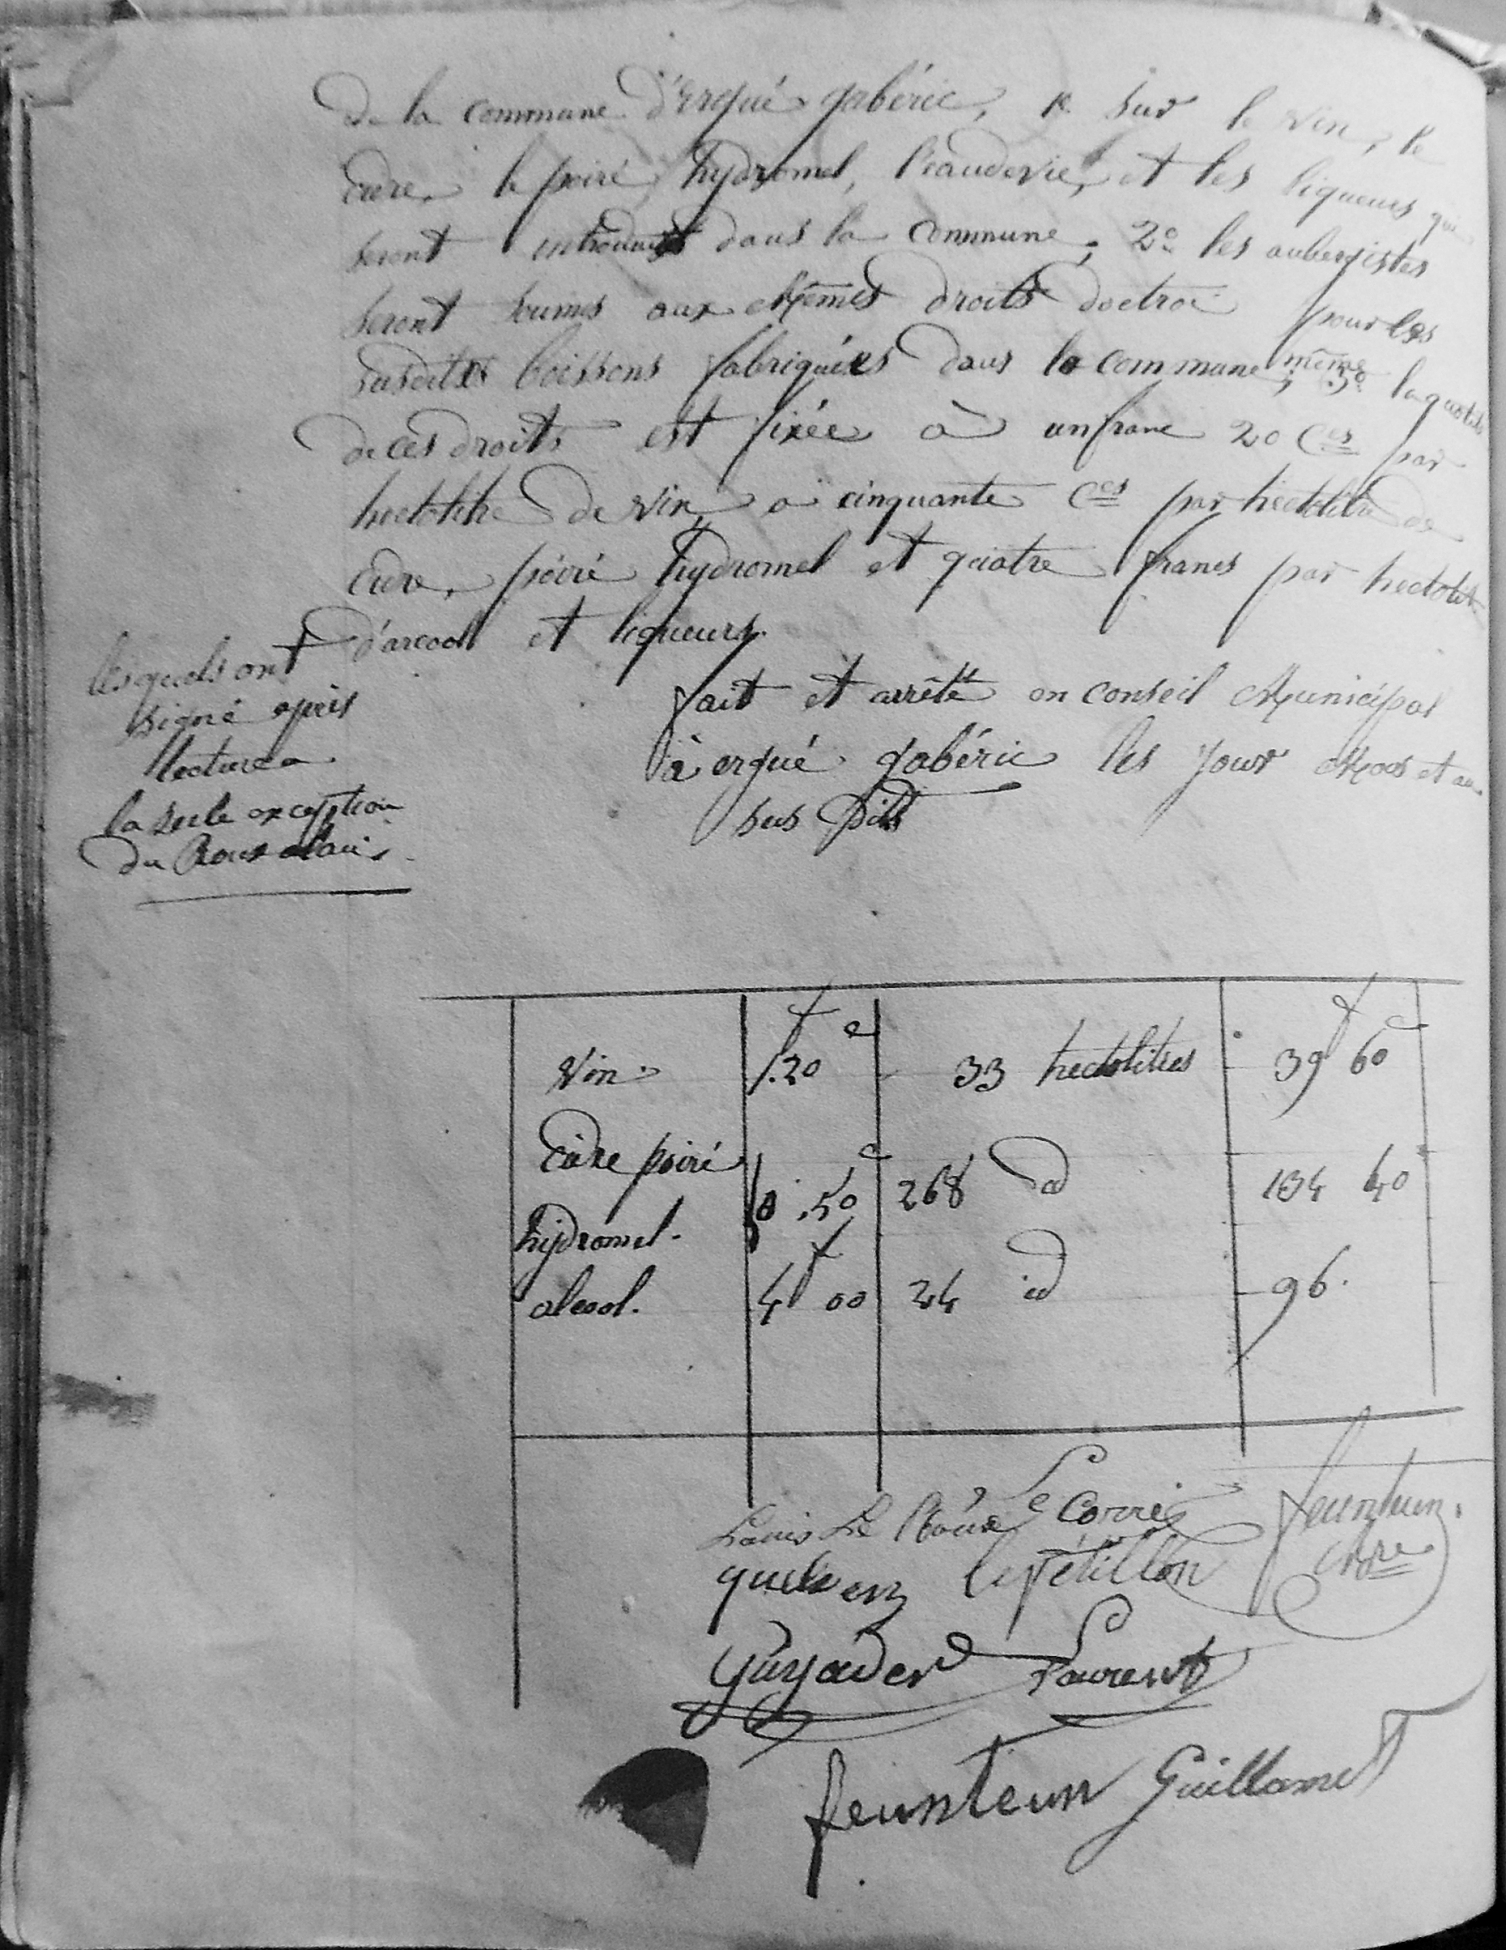 De la commune D'Ergué gabéric, 1º. sur le vin, le
cidre, le poiré, hydromel, l'eaudevie, et les liqueurs qui
seront introduits dans la commune, 2º les aubergistes
seront soumis aux Mêmes droits doctroi pour les
susdites boissons fabriquées dans la commune même; 3º la quotité
de ces droits est fixée à un franc 20 Ces par
hectolitre de vin, a cinquante Ces par hectolitre de
cidre, poiré hydromel et quatre francs par hectolit
d'arcool et liqueurs.
lesquels ont
signé après
lecture a
la seule exception
du Roux alain
fait et arrêté en conseil Municipal
à ergué gabéric les jour Mois et an
sus dits
f c f c
Vin. 1.20 33 hectolitres 39 60
Cidre poiré 0.50 c 268 d 134 40
hydromel.
alcool. 4 f 00 24 id 96.
Louis Le Roux Le Corre feunteun
mre
guelenn le pétillon
Guyader Laurent
feunteun Guillaume